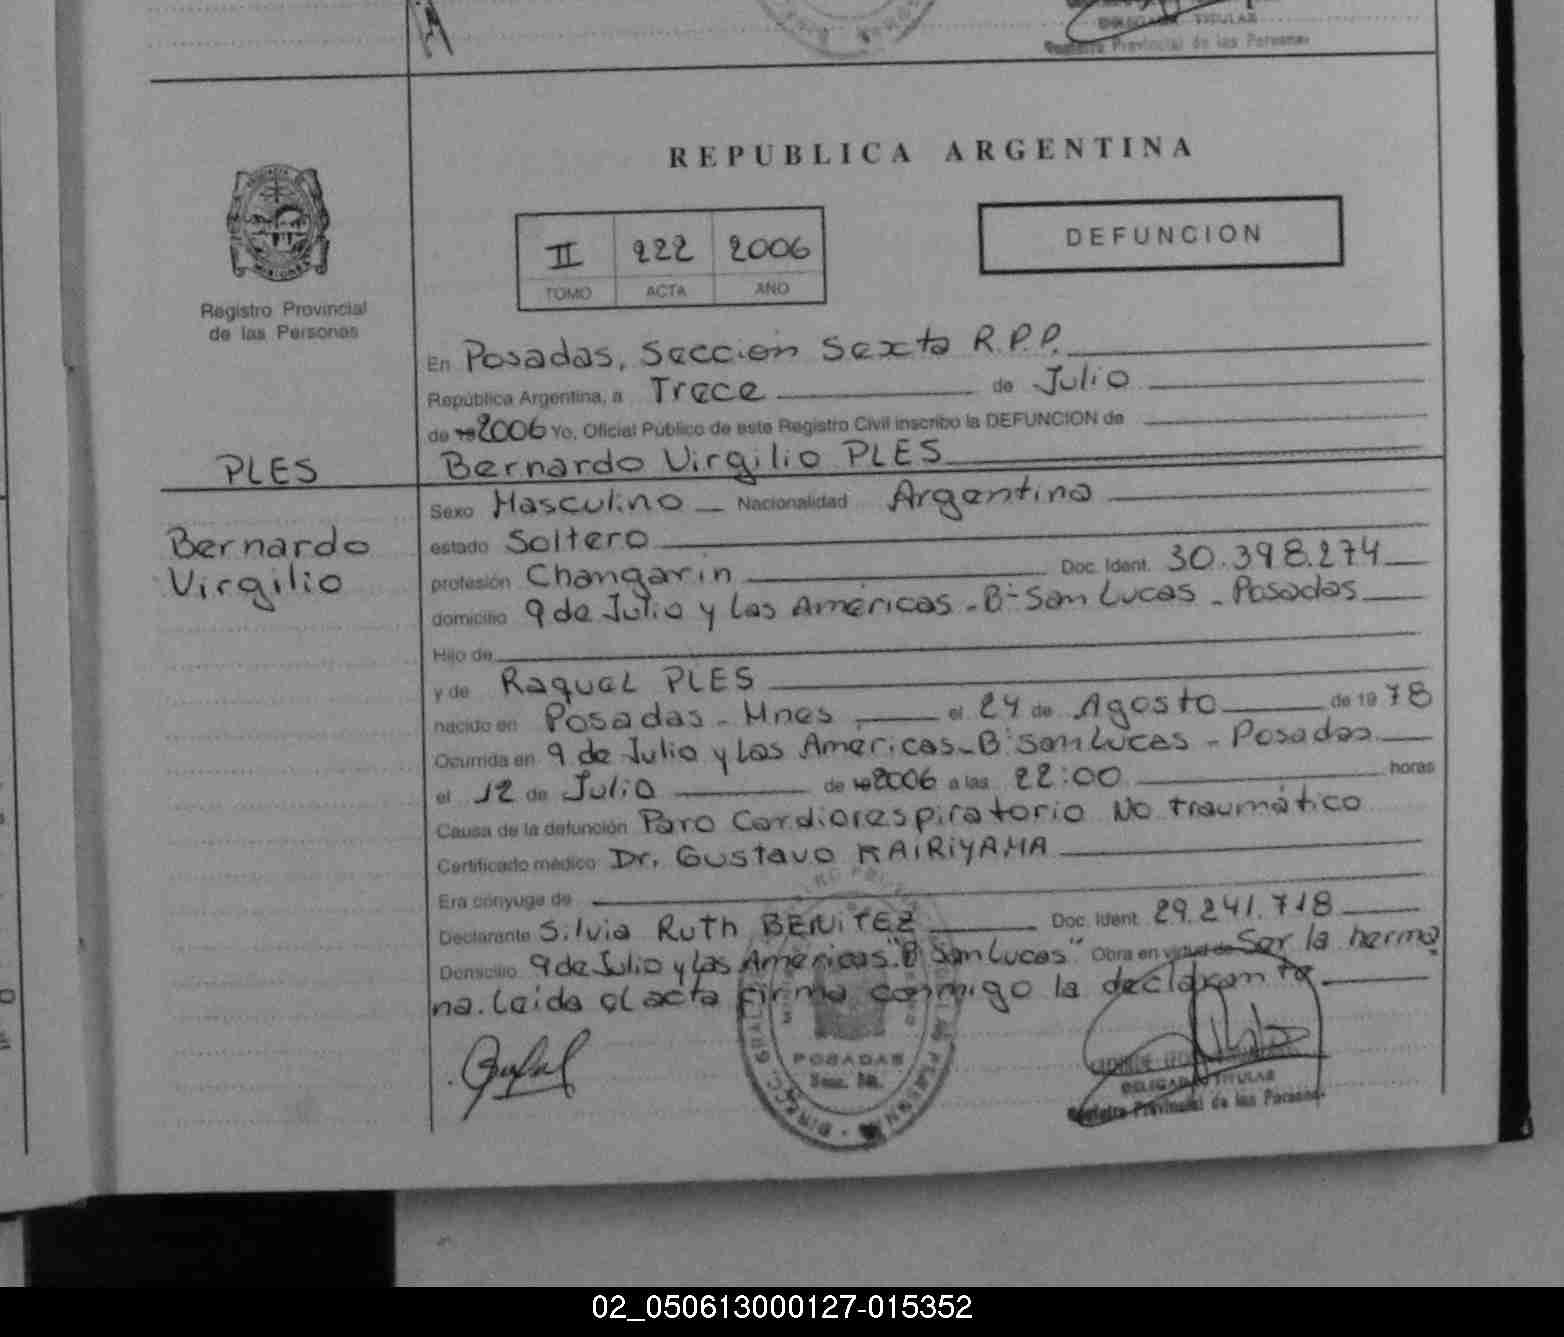 TITULAR
Registro Provincial de las Personas
REPUBLICA ARGENTINA
II 222 2006
TOMO ACTA AÑO
DEFUNCION
MISIONES
Registro Provincial
de las Personas
En Posadas, Sección Sexta R.P.P.
República Argentina, a Trece de Julio
de 19 2006 Yo, Oficial Público de este Registro Civil inscribo la DEFUNCION de
PLES
Bernardo Virgilio PLES
Bernardo
Virgilio
Sexo Masculino Nacionalidad Argentina
estado Soltero
profesión Changarin Doc. Ident. 30.398.274
domicilio 9 de Julio y Las Américas - Bº San Lucas - Posadas
Hijo de
y de Raquel PLES
nacido en Posadas - Mnes el 24 de Agosto de 19 78
Ocurrida en 9 de Julio y Las Américas - Bº San Lucas - Posadas
el 12 de Julio de 19 2006 a las 22:00 horas
Causa de la defunción Paro Cardiorespiratorio No traumático
Certificado médico Dr. Gustavo KAIRIYAMA
Era cónyuge de
Declarante Silvia Ruth BENITEZ Doc. Ident. 29.241.718
Domicilio 9 de Julio y Las Américas "Bº San Lucas" Obra en virtud de Ser la herma
na. Leida el acta firma conmigo la declarante
POSADAS
Secc. 6ta.
DELEGADO TITULAR
Registro Provincial de las Personas
02_050613000127-015352